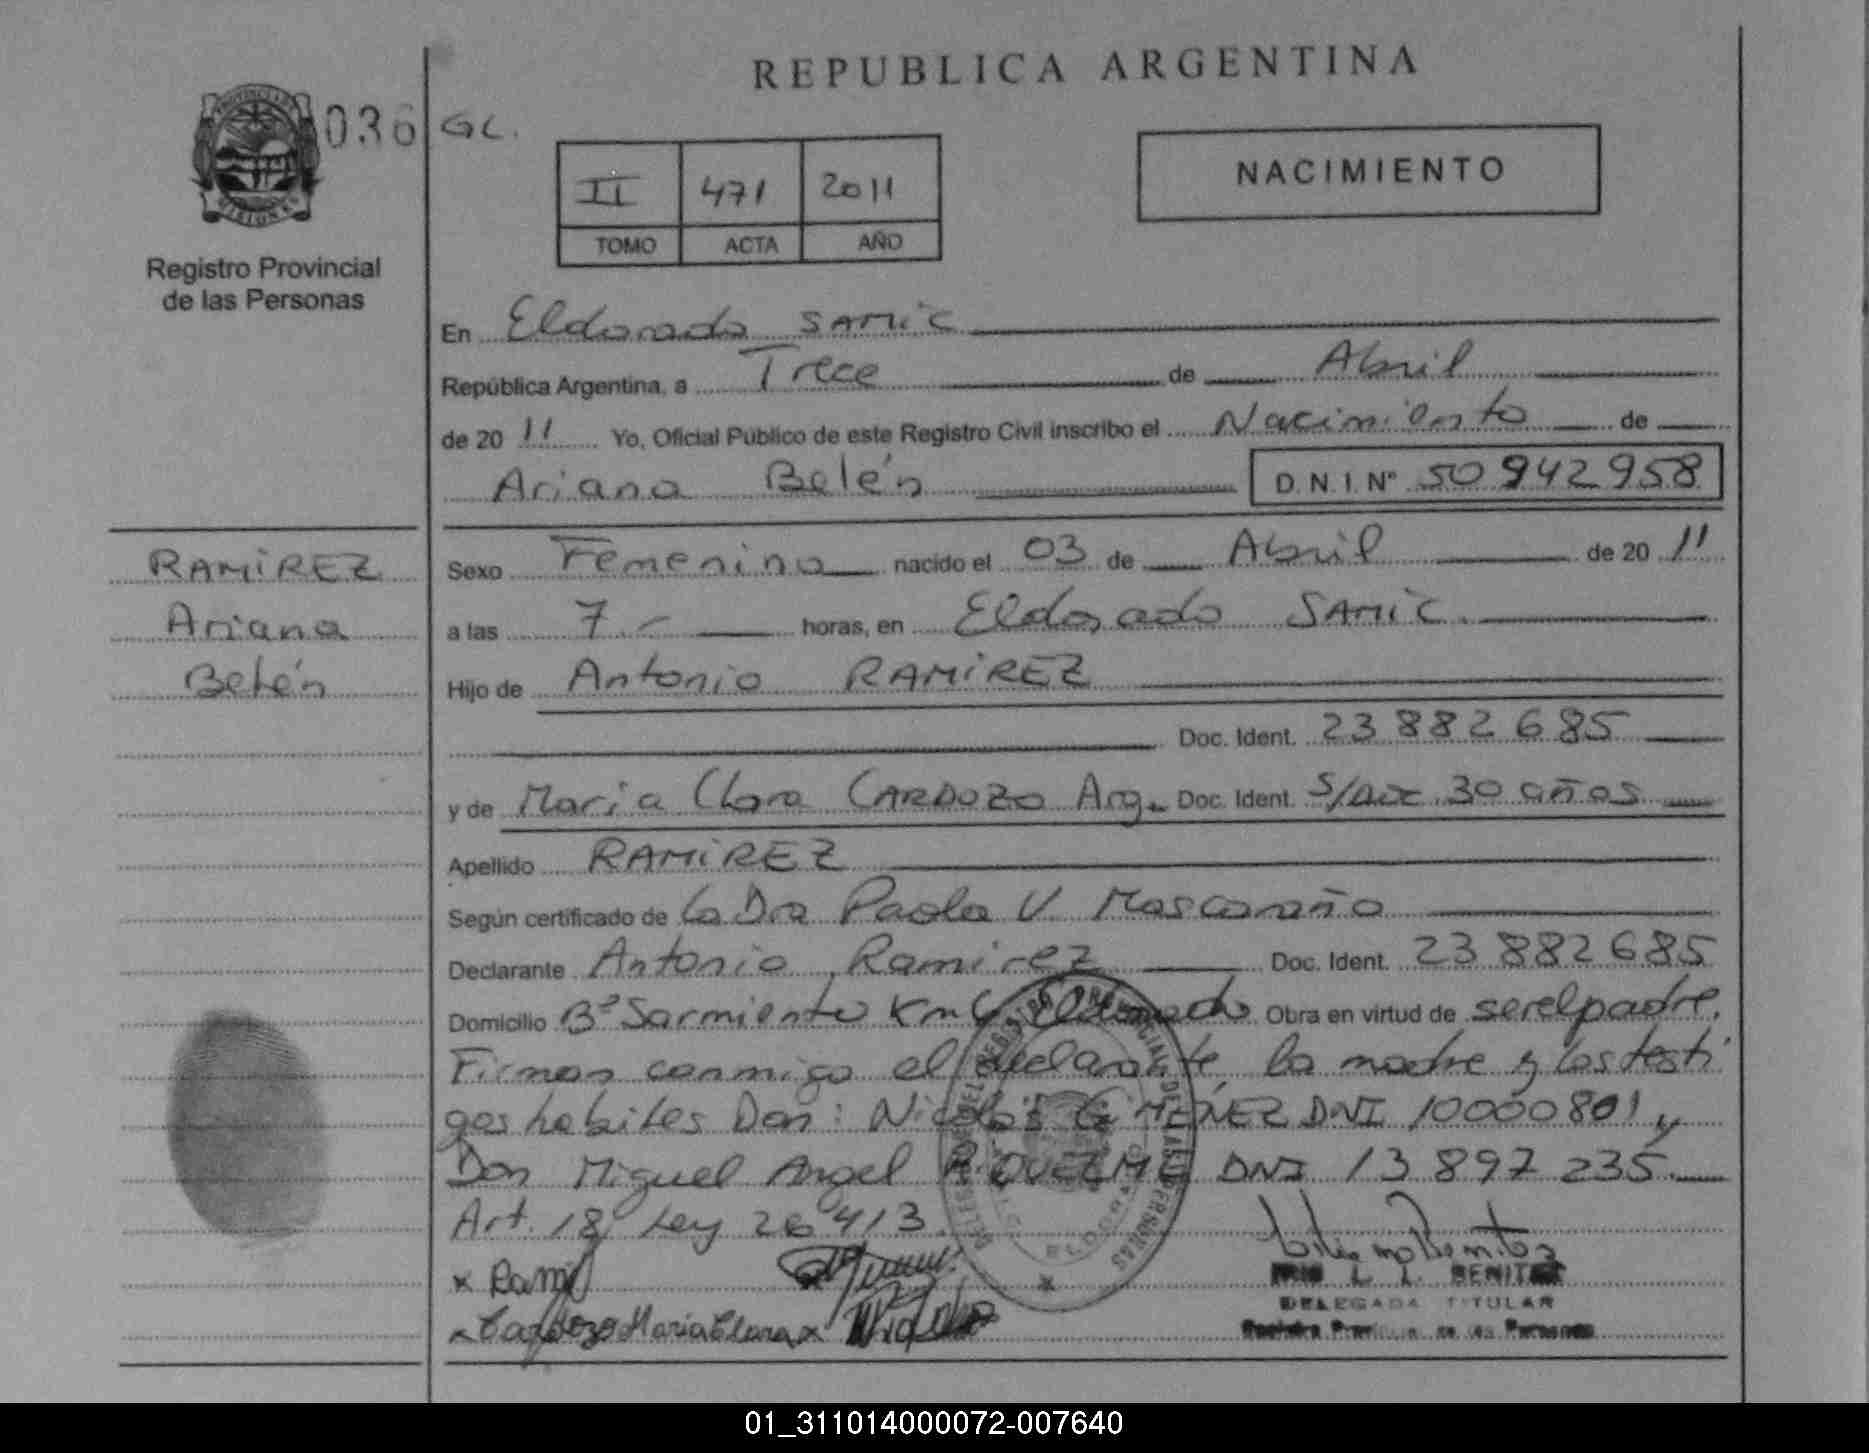 REPUBLICA ARGENTINA
036 GL.
II 471 2011
TOMO ACTA AÑO
NACIMIENTO
Registro Provincial
de las Personas
En Eldorado SAMIC
República Argentina, a Trece de Abril
de 20 11 Yo, Oficial Público de este Registro Civil inscribo el Nacimiento de
Ariana Belén D.N.I. Nº 50942958
RAMIREZ
Ariana
Belén
Sexo Femenino nacido el 03 de Abril de 20 11
a las 7.- horas, en Eldorado SAMIC.
Hijo de Antonio RAMIREZ
Doc. Ident. 23882685
y de Maria Clara CARDOZO Arg. Doc. Ident. S/doc 30 años
Apellido RAMIREZ
Según certificado de la Dra Paola V. Mascaraño
Declarante Antonio Ramirez Doc. Ident. 23882685
Domicilio Bº Sarmiento Km Eldorado Obra en virtud de ser el padre.
Firman conmigo el declarante, la madre y los testi
gos habiles Don: Nicolás GIMENEZ DNI 10000801 y
Don Miguel Angel RIQUELME DNI 13 897 235.
Art. 18 Ley 26413.
x Rami
x Cardozo Maria Clara x
L. I. BENITEZ
DELEGADA TITULAR
Registro Provincial de las Personas
REGISTRO PROVINCIAL DE LAS PERSONAS
ELDORADO
01_311014000072-007640